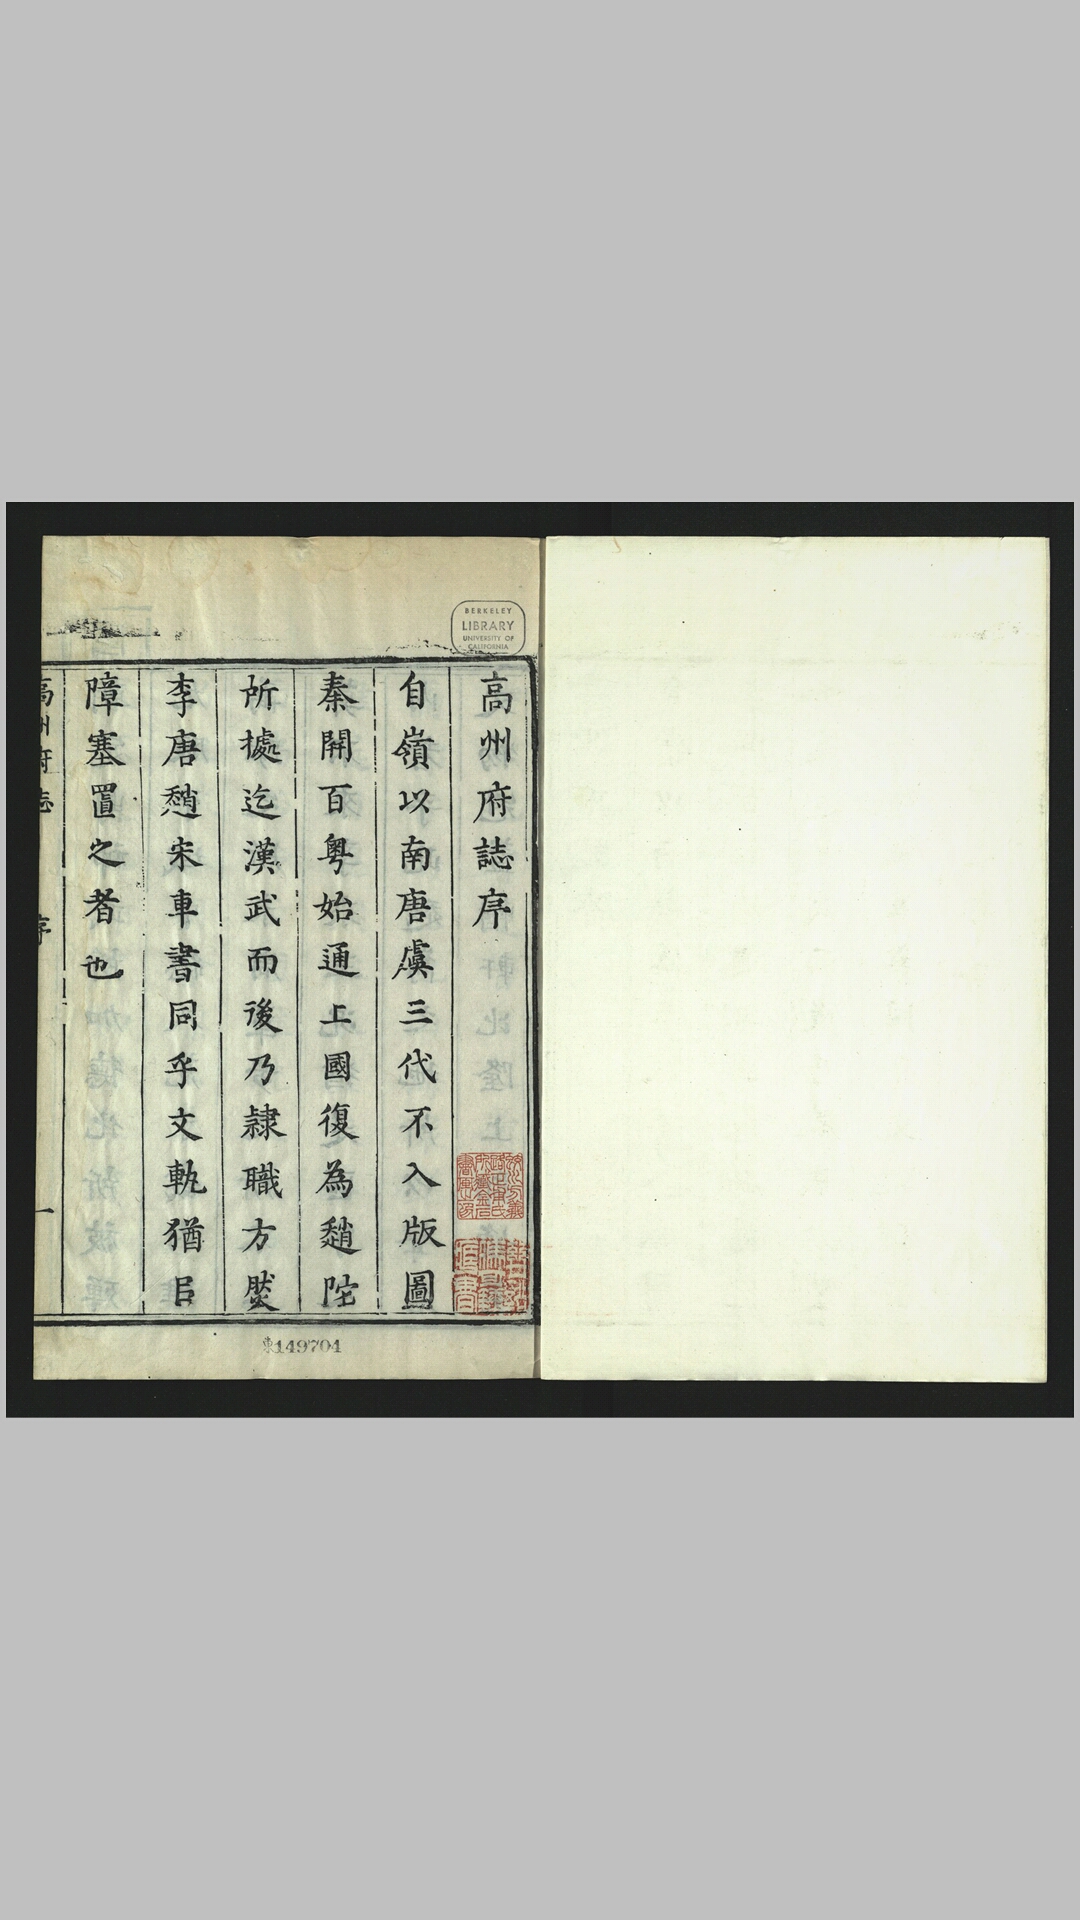 高州府誌序
自嶺以南唐虞三代不入版圖
秦開百粤始通上國復為趙陀
所據迄漢武而後乃隷職方然
李唐趙宋車書同乎文軌猶以
障塞置之者也
高州府志 序 一
BERKELEY
LIBRARY
UNIVERSITY OF
CALIFORNIA
東149704